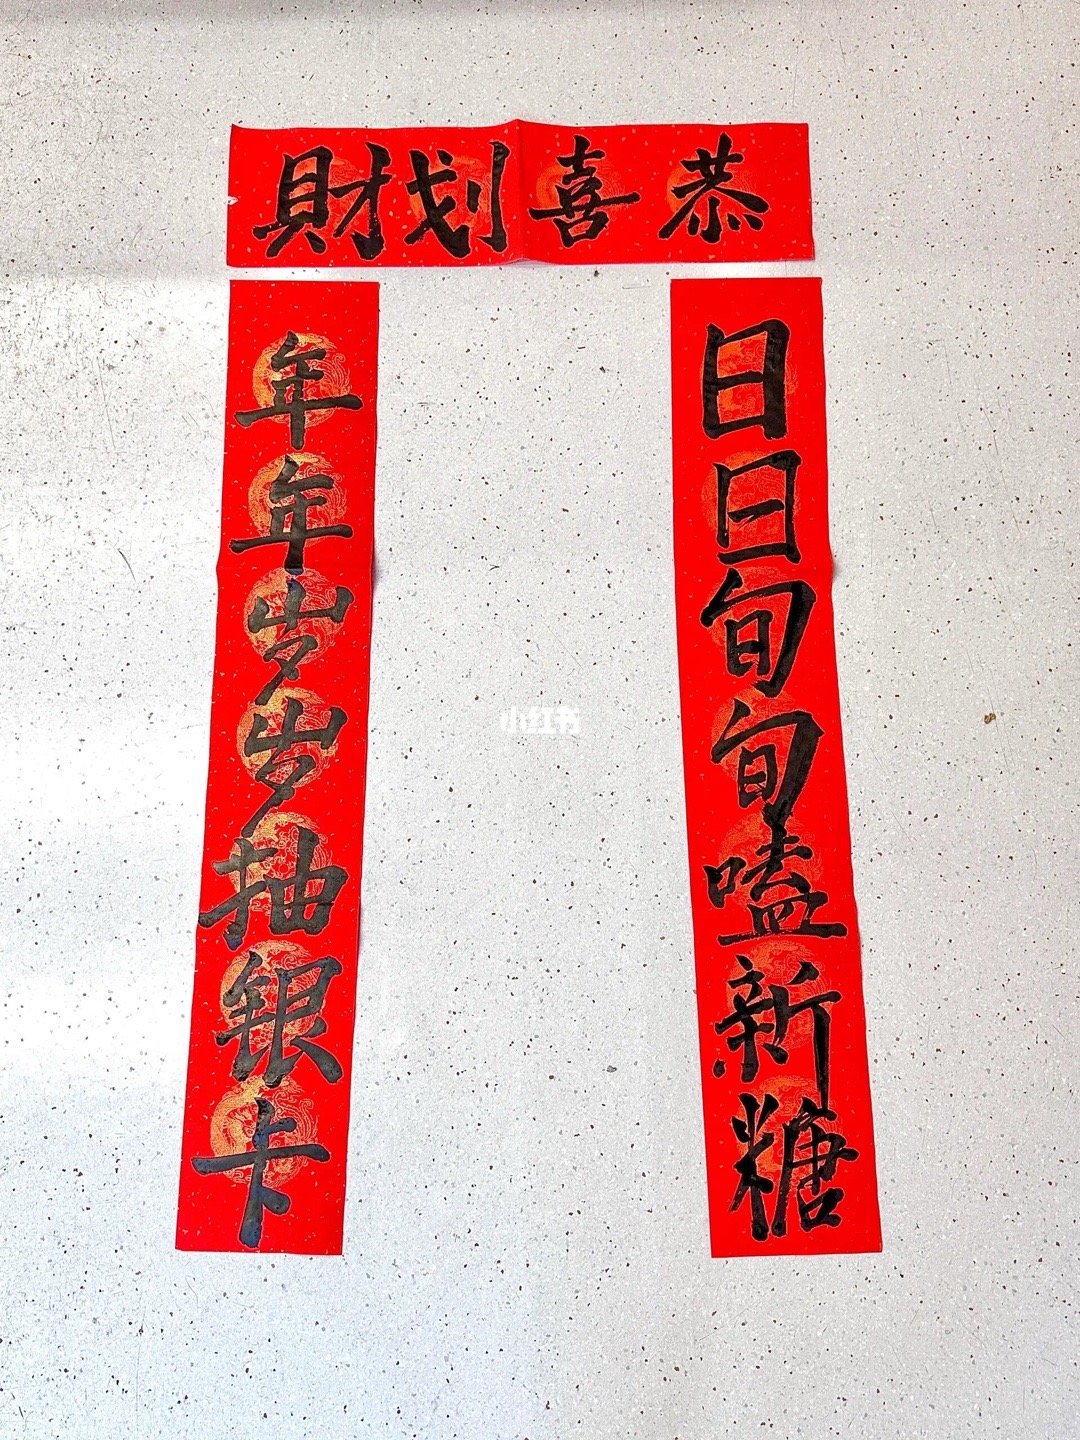 恭喜划財
日日旬旬嗑新糖
年年岁岁抽银卡
小红书